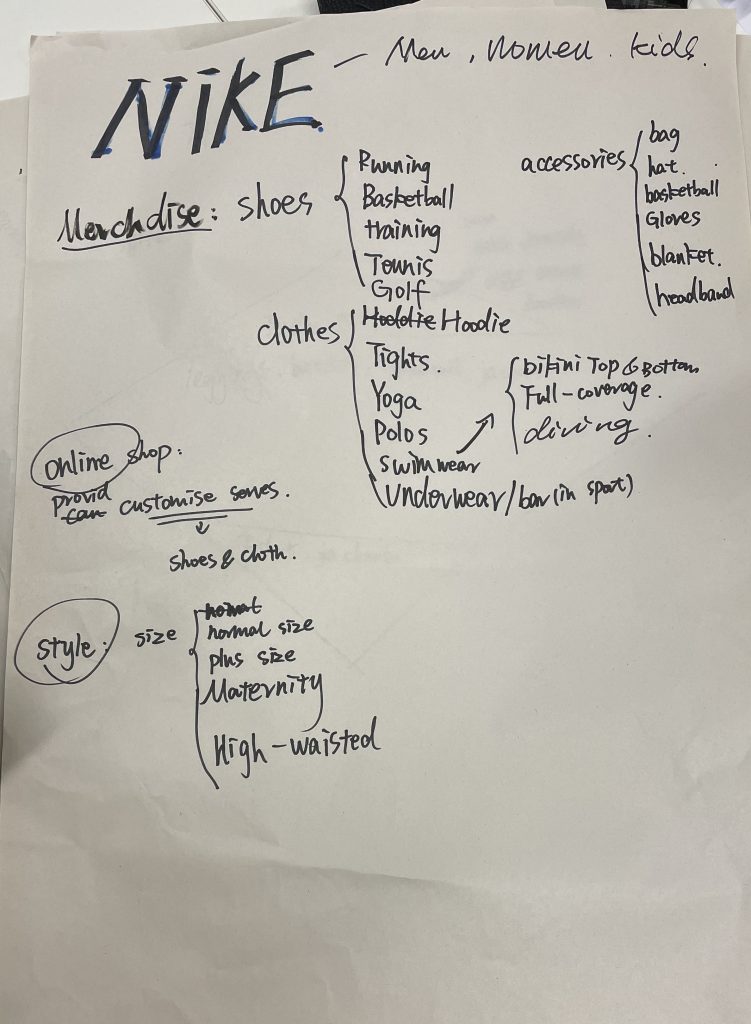 NIKE — Men, women. kids.
Merchdise: shoes
Running
Basketball
training
Tennis
Golf
accessories
bag
hat.
basketball
Gloves
blanket.
headband
clothes
Hoddie Hoodie
Tights.
Yoga
Polos
swimwear
underwear/bar (in sport)
bikini Top & Bottom
Full-coverage.
diving.
online shop:
provid
can customise serves.
shoes & cloth.
style: size
normal size
plus size
Maternity
High-waisted